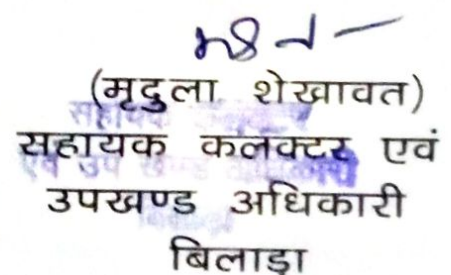 (मृदुला शेखावत)
सहायक कलक्टर एवं
उपखण्ड अधिकारी
बिलाडा